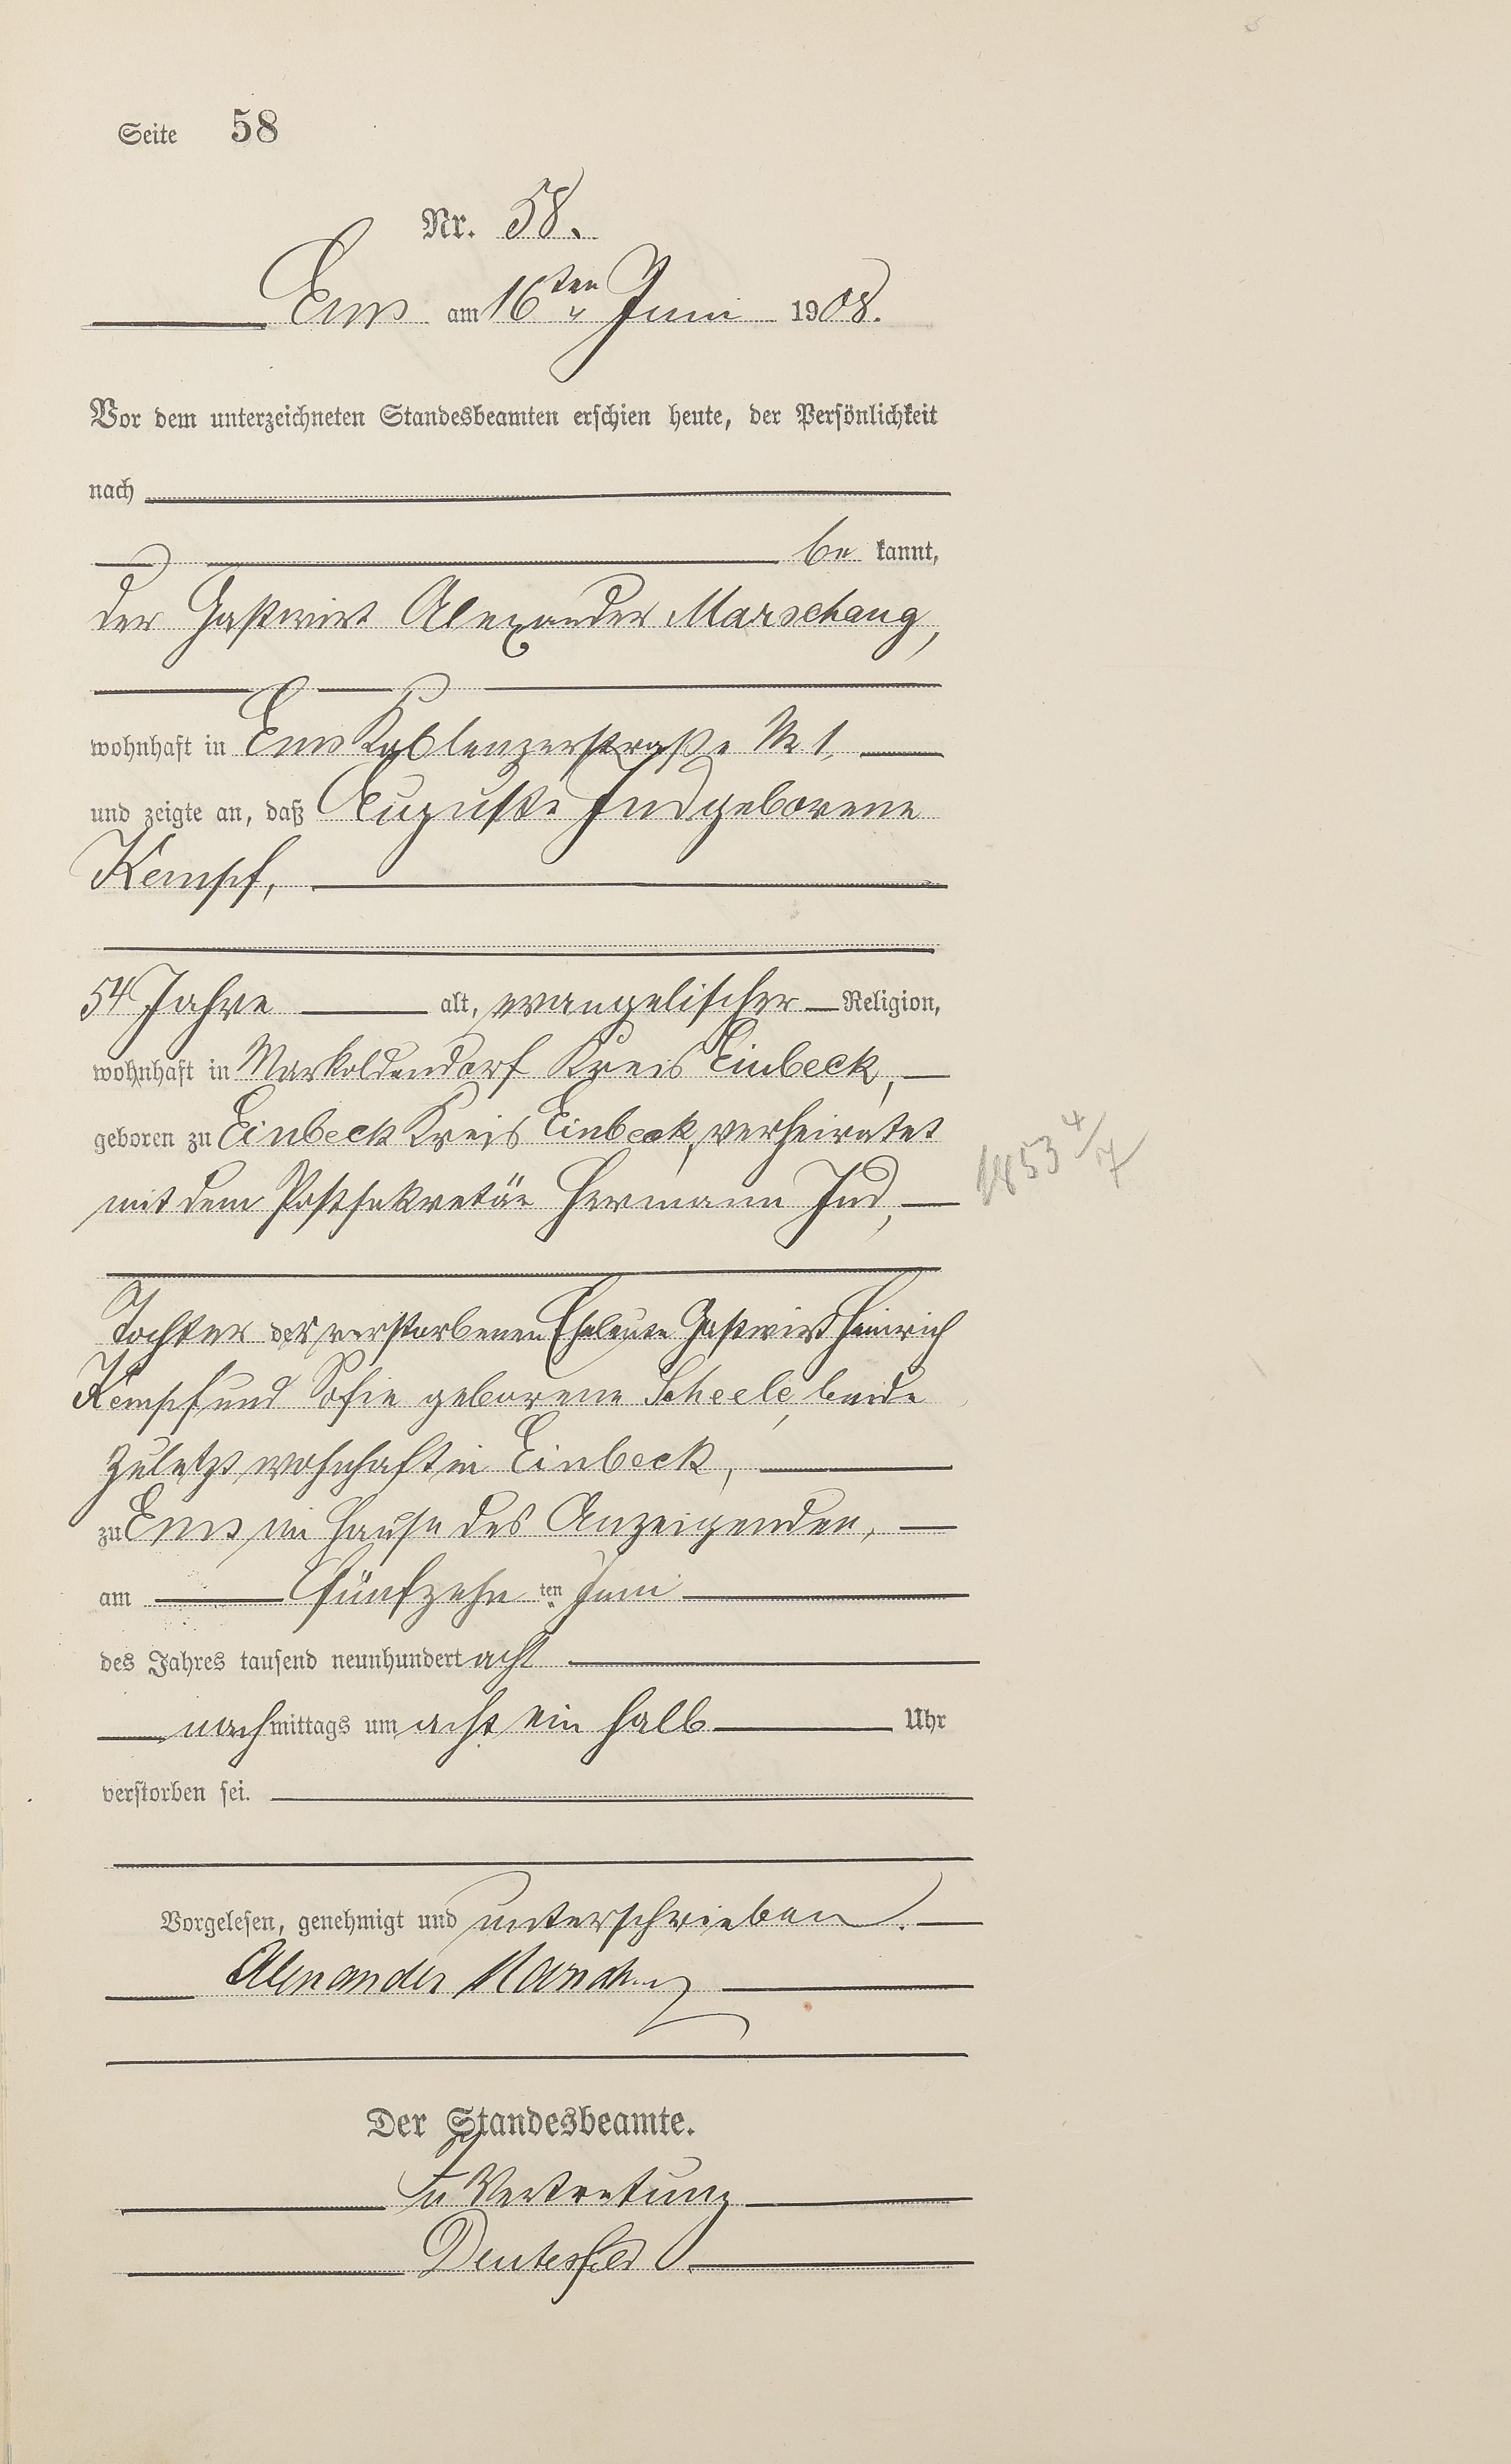 Seite 58
Nr. 58.
Ems am 16ten Juni 1908.
Vor dem unterzeichneten Standesbeamten erschien heute, der Persönlichkeit
nach
be kannt,
der Gastwirt Alexander Marschang,
wohnhaft in Ems Koblenzerstraße № 1,
und zeigte an, daß Auguste Jud geborene
Kempf,
54 Jahre alt, evangelischer Religion,
wohnhaft in Markoldendorf Kreis Einbeck,
geboren zu Einbeck Kreis Einbeck, verheiratet
1853 4/7
mit dem Postsekretär Hermann Jud,
Tochter der verstorbenen Eheleute Gastwirt Heinrich
Kempf und Sofie geborene Scheele, beide
zuletzt wohnhaft in Einbeck,
zu Ems im Hause des Anzeigenden,
am fünfzehn ten Juni
des Jahres tausend neunhundert acht
nachmittags um acht ein halb Uhr
verstorben sei.
Vorgelesen, genehmigt und unterschrieben.
Alexander Marschang
Der Standesbeamte.
In Vertretung